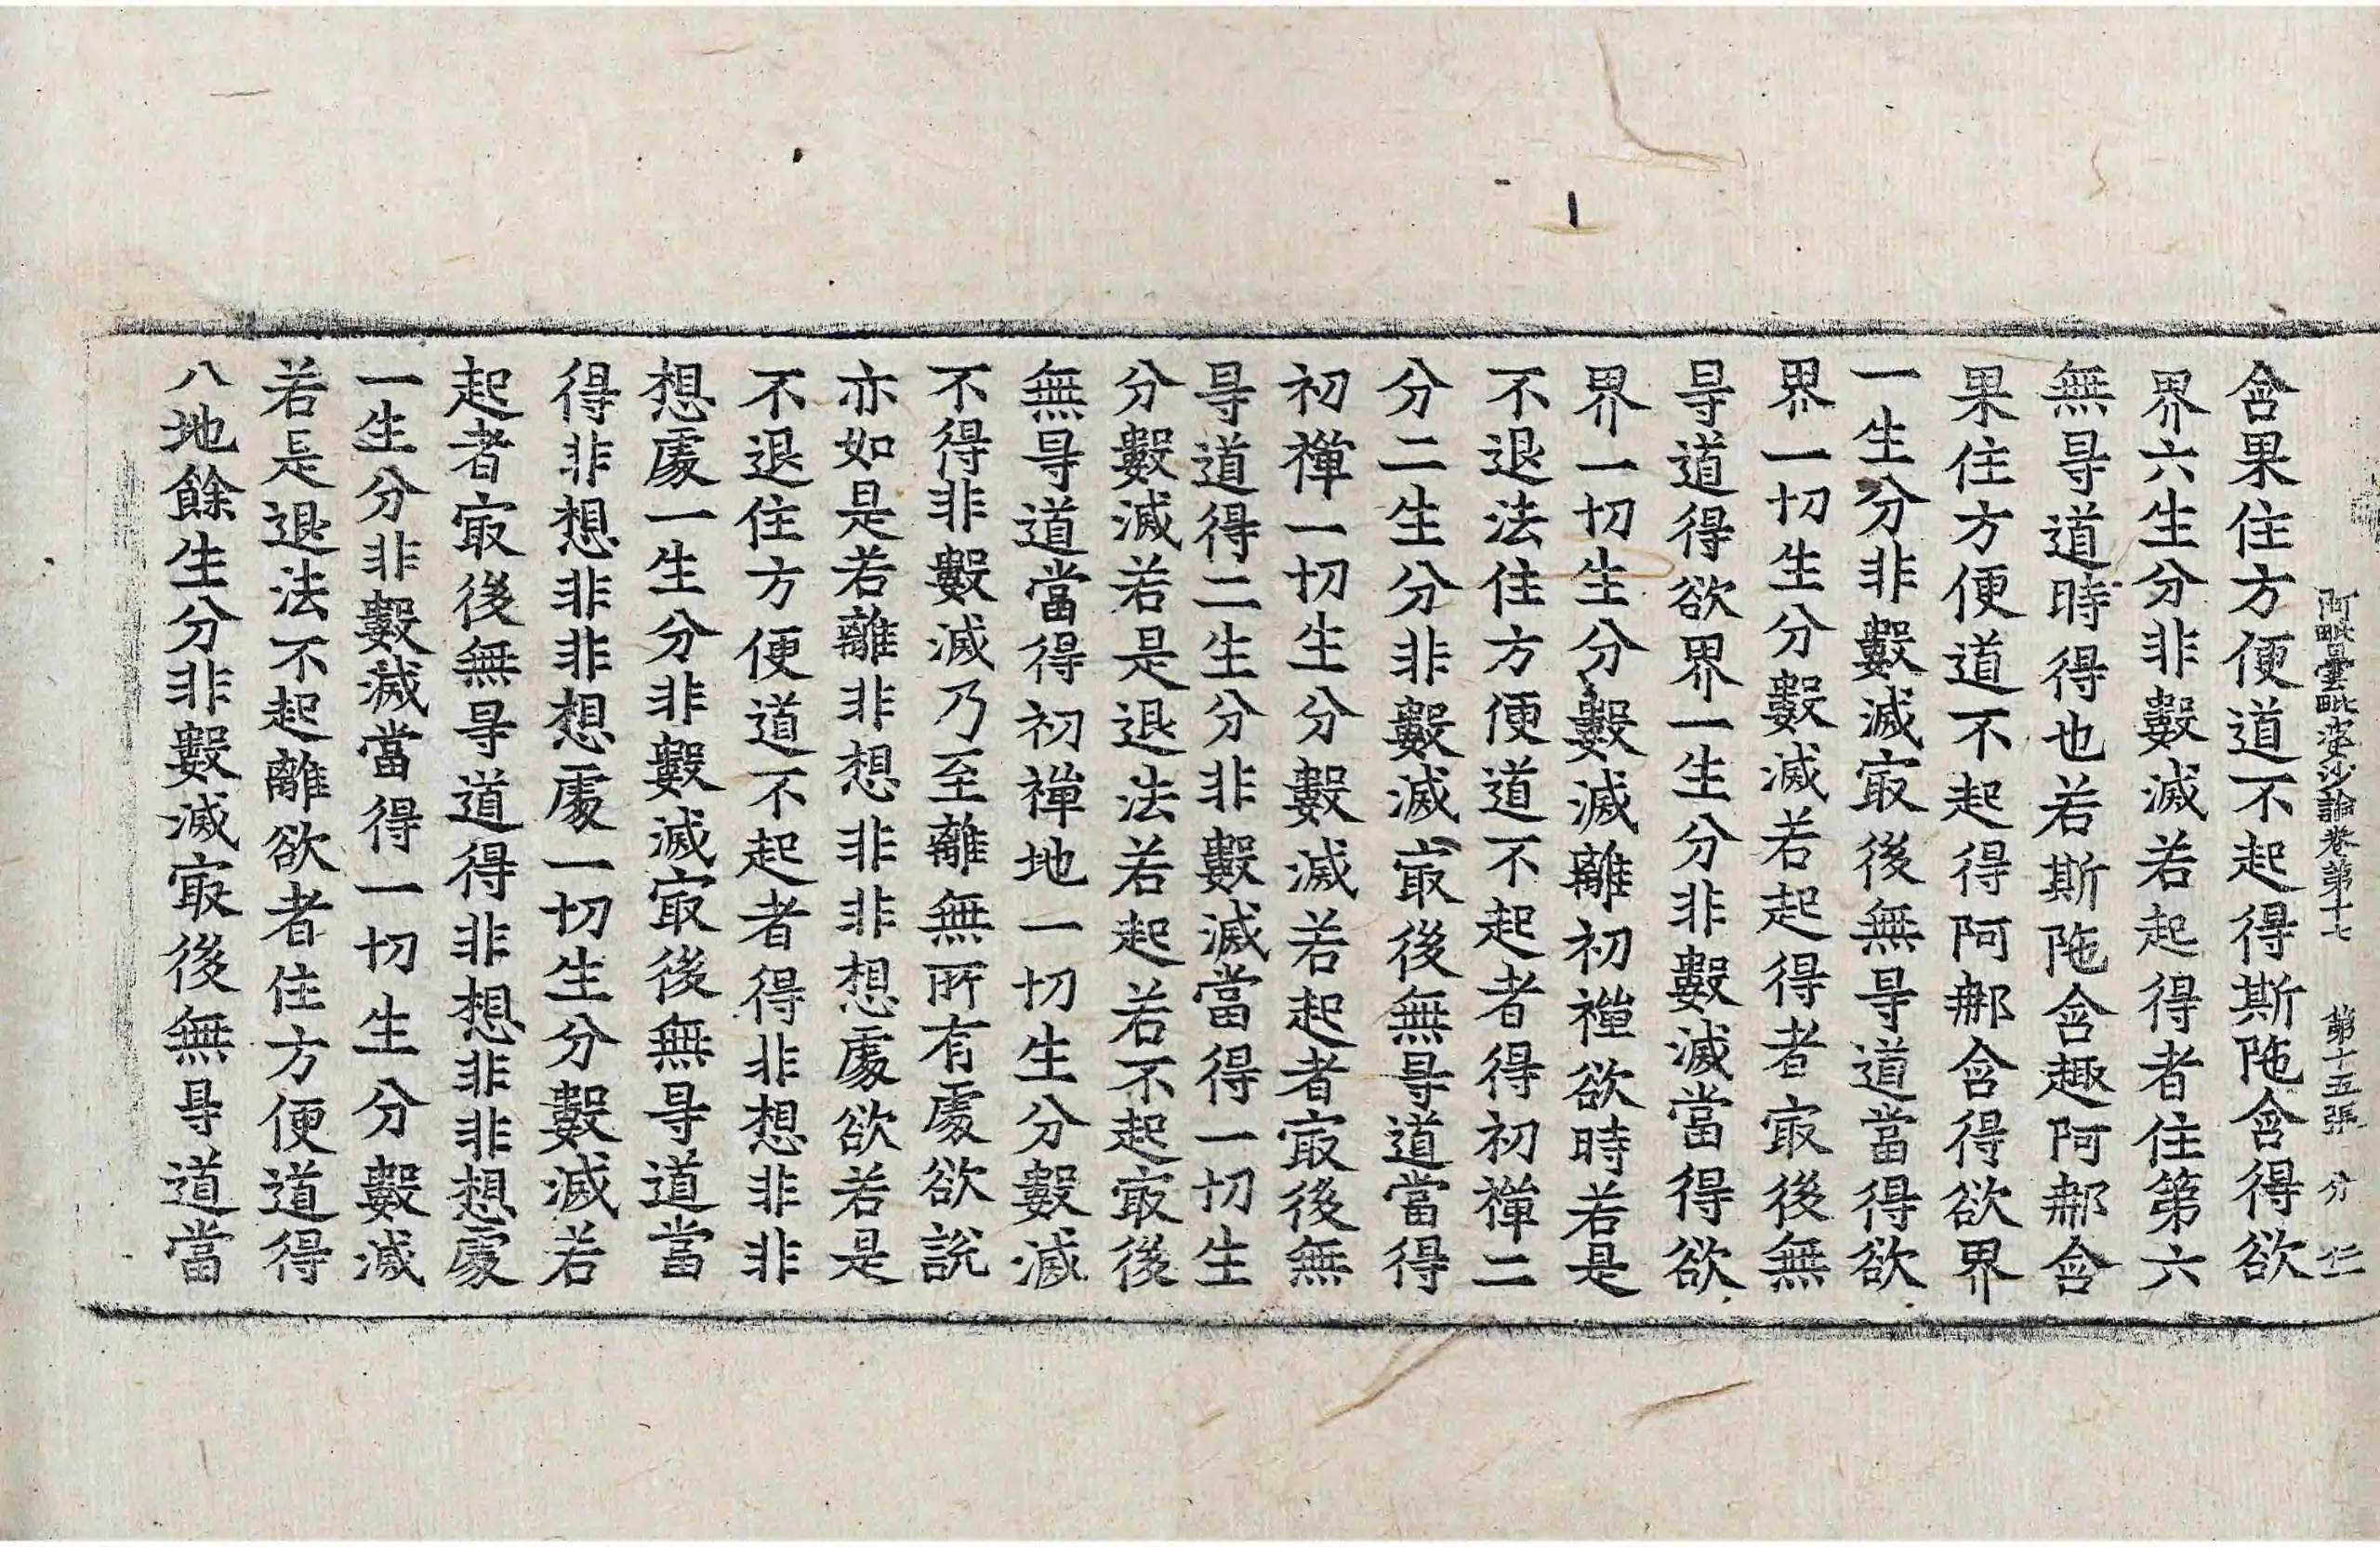 阿毗曇毗婆沙論卷第十七　第十五張　分　仁
含果住方便道不起得斯陁含得欲
界六生分非數滅若起得者住第六
無㝵道時得也若斯陁含趣阿那含
果住方便道不起得阿那含得欲界
一生分非數滅㝡後無㝵道當得欲
界一切生分數滅若起得者㝡後無
㝵道得欲界一生分非數滅當得欲
界一切生分數滅離初禪欲時若是
不退法住方便道不起者得初禪二
分二生分非數滅㝡後無㝵道當得
初禪一切生分數滅若起者㝡後無
㝵道得二生分非數滅當得一切生
分數滅若是退法若起若不起㝡後
無㝵道當得初禪地一切生分數滅
不得非數滅乃至離無所有處欲說
亦如是若離非想非非想處欲若是
不退住方便道不起者得非想非非
想處一生分非數滅㝡後無㝵道當
得非想非非想處一切生分數滅若
起者㝡後無㝵道得非想非非想處
一生分非數滅當得一切生分數滅
若是退法不起離欲者住方便道得
八地餘生分非數滅㝡後無㝵道當